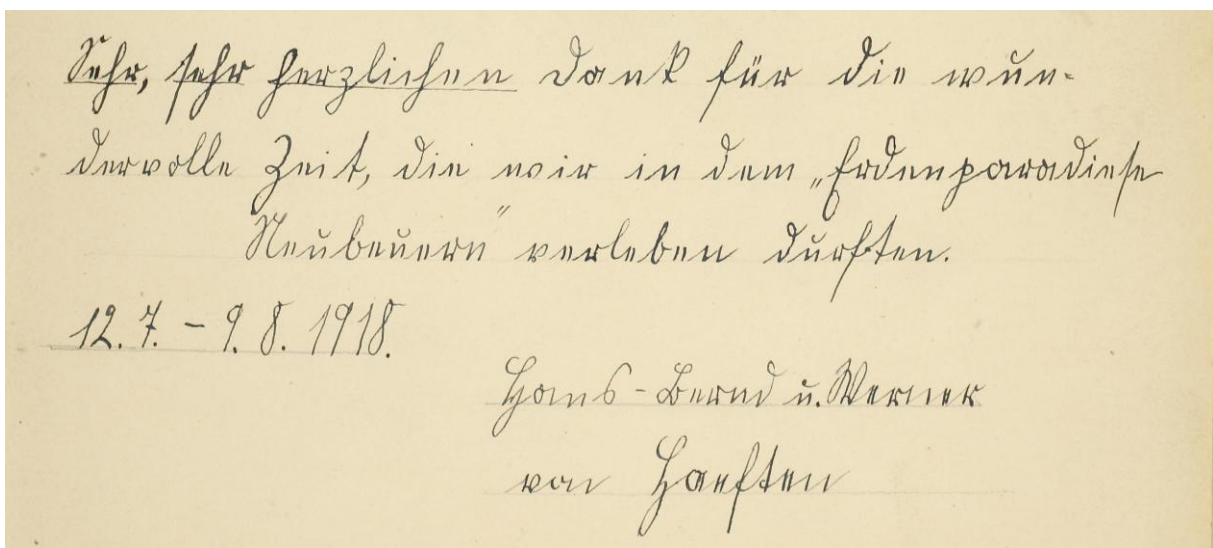 Sehr, sehr herzlichen Dank für die wun-
dervolle Zeit, die wir in dem „Erdenparadiese
Neubeuern" verleben durften.
12.7. - 9.8. 1918.
Hans-Bernd u. Werner
von Haeften